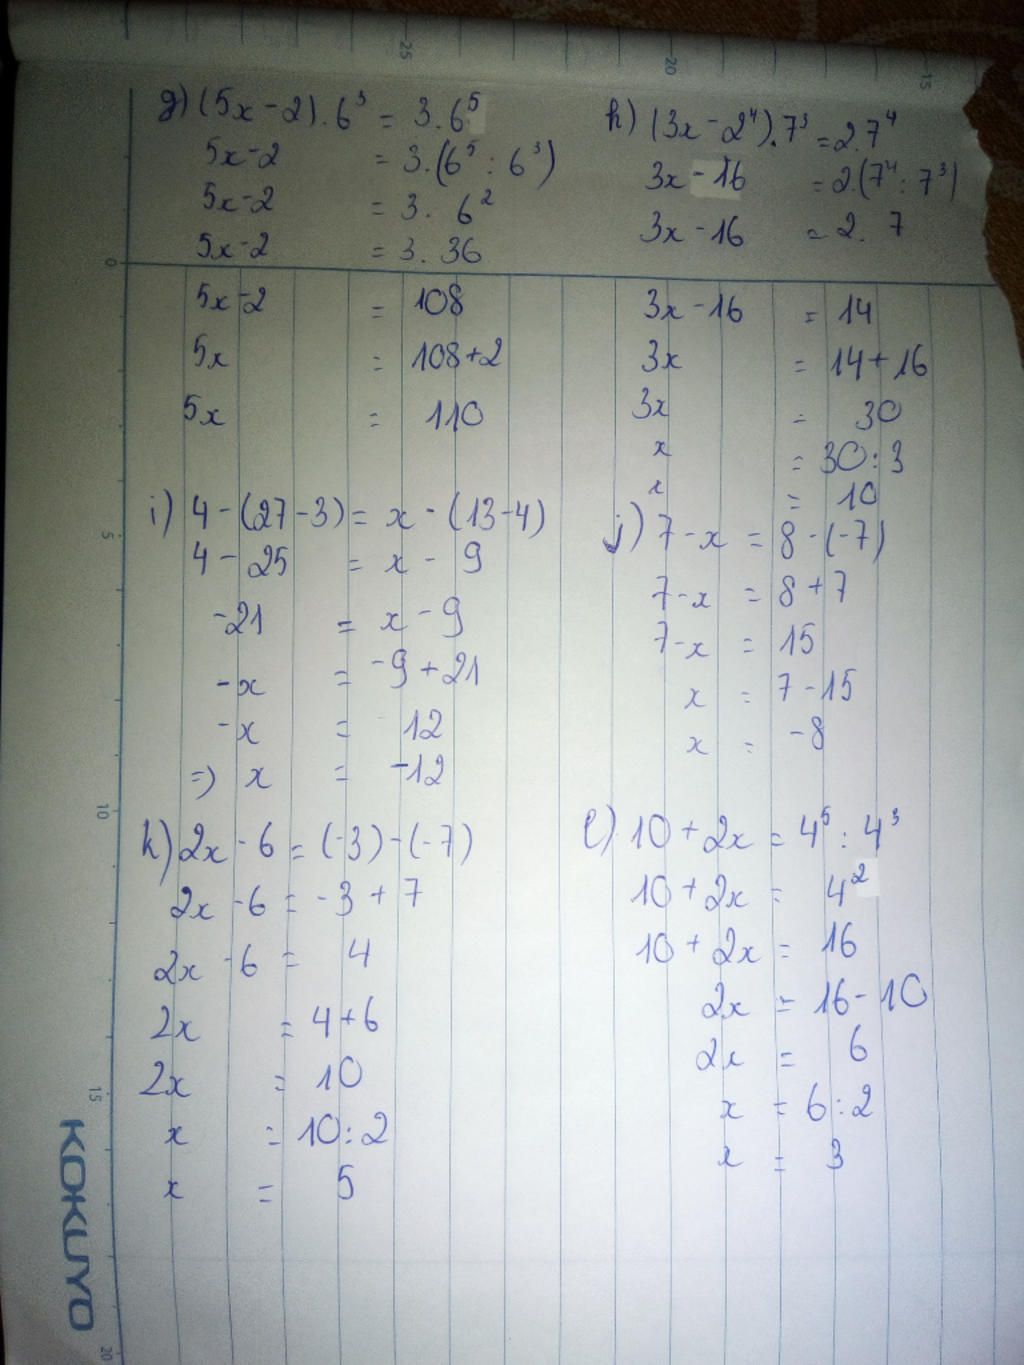 25
20
15
g) (5x-2).6³ = 3.6⁵
5x-2 = 3.(6⁵ : 6³)
5x-2 = 3. 6²
5x-2 = 3. 36
5x-2 = 108
5x = 108+2
5x = 110
h) (3x-2⁴).7³ = 2.7⁴
3x-16 = 2.(7⁴ : 7³)
3x-16 = 2. 7
3x-16 = 14
3x = 14+16
3x = 30
x = 30:3
x = 10
i) 4-(27-3) = x-(13-4)
4-25 = x-9
-21 = x-9
-x = -9+21
-x = 12
=) x = -12
j) 7-x = 8-(-7)
7-x = 8+7
7-x = 15
x = 7-15
x = -8
k) 2x-6 = (-3)-(-7)
2x-6 = -3+7
2x-6 = 4
2x = 4+6
2x = 10
x = 10:2
x = 5
l) 10+2x = 4⁵ : 4³
10+2x = 4²
10+2x = 16
2x = 16-10
2x = 6
x = 6:2
x = 3
0
5
10
15
20
KOKUYO